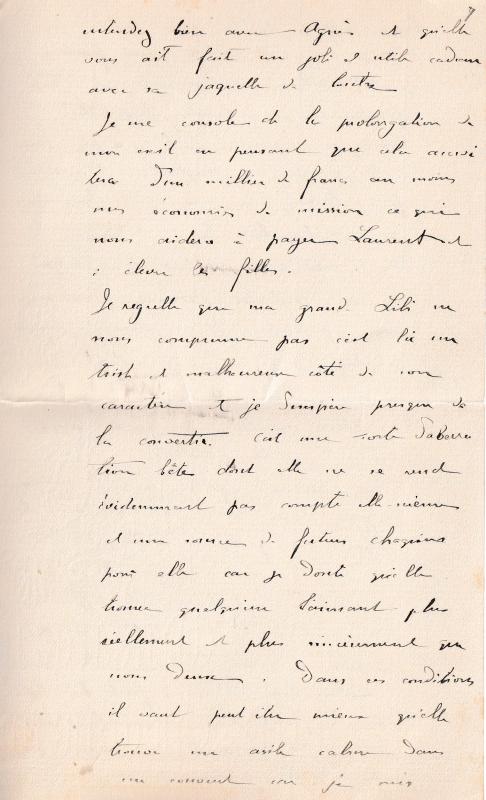 7
entendez bien avec Agnès et qu'elle
vous ait fait un joli et utile cadeau
avec sa jaquette de loutre
Je me console de la prolongation de
mon exil en pensant que cela accroi
tera d'un millier de francs au moins
nos économies de mission ce qui
nous aidera à payer Laurent et
à élever les filles.
Je regrette que ma grande Lili ne
nous comprenne pas c'est là un
triste et malheureux côté de son
caractère et je désespère presque de
la convertir. C'est une sorte d'aberra
tion bête dont elle ne se rend
évidemment pas compte elle-même
et une source de futurs chagrins
pour elle car je doute qu'elle
trouve quelqu'un l'aimant plus
réellement et plus sincèrement que
nous deux. Dans ces conditions
il vaut peut être mieux qu'elle
trouve un asile calme dans
un couvent car je